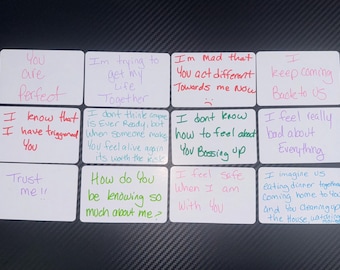 You
are
Perfect
I'm trying to
get my
life
Together
I'm mad that
You act different
Towards me Now
I
keep coming
Back to US
I know that
I have triggered
You
I dont think anyone
is Ever Ready, but
When someone makes
You feel alive again
its worth the risk
I dont know
how to feel about
You Bossing up
I feel really
bad about
Everything
Trust
me !!
How do You
be knowing so
much about me?
I feel safe
When I am
With You
I imagine us
eating dinner together
coming home to you
and You cleaning up
the House, watching